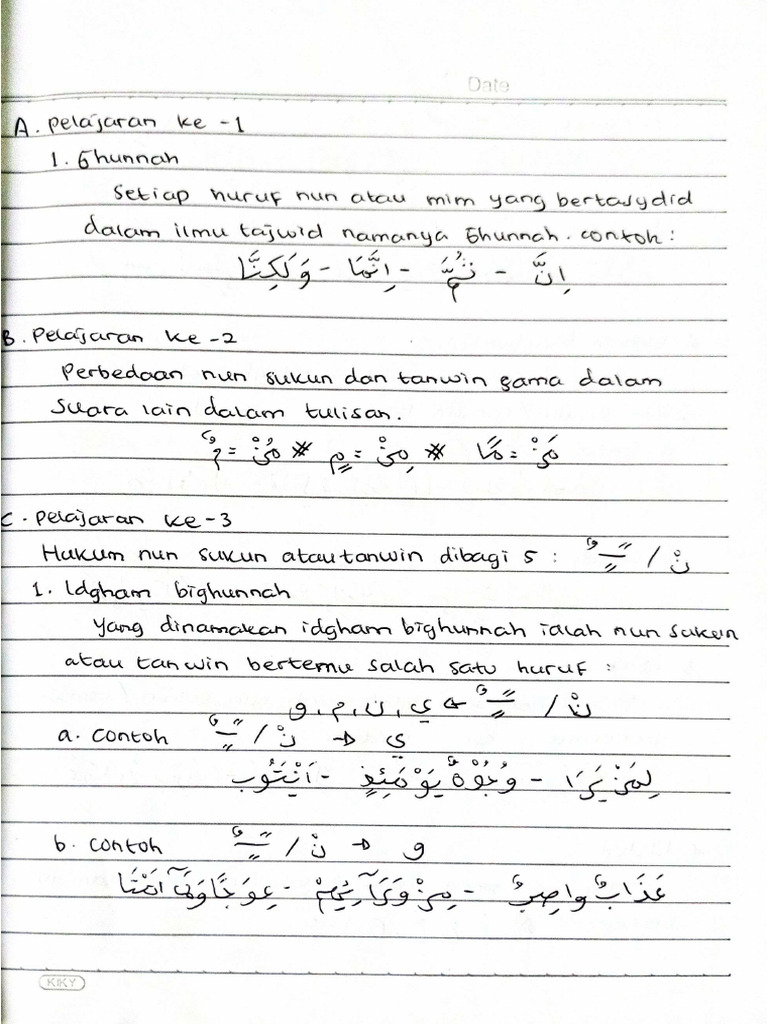 Date
A. Pelajaran ke -1
1. Ghunnah
Setiap huruf nun atau mim yang bertasydid
dalam ilmu tajwid namanya Ghunnah. contoh :
اِنَّ - ثُمَّ - اِنَّمَا - وَلَكِنَّا
B. Pelajaran ke -2
Perbedaan nun sukun dan tanwin sama dalam
suara lain dalam tulisan.
مَنْ = مًا # مِنْ = مٍ # مُنْ = مٌ
C. Pelajaran ke -3
Hukum nun sukun atau tanwin dibagi 5 : نْ / ــًــٍــٌ
1. Idgham bighunnah
Yang dinamakan idgham bighunnah ialah nun sukun
atau tanwin bertemu salah satu huruf :
نْ / ــًــٍــٌ → ي , ن , م , و
a. contoh نْ / ــًــٍــٌ → ي
لِمَنْ يَرَا - وُجُوْهٌ يَوْمَئِذٍ - اَنْيَتُوب
b. contoh نْ / ــًــٍــٌ → و
عَذَابٌ واصِبٌ - مِنْ وَرَآئِهِمْ - عِوَجًا
KIKY